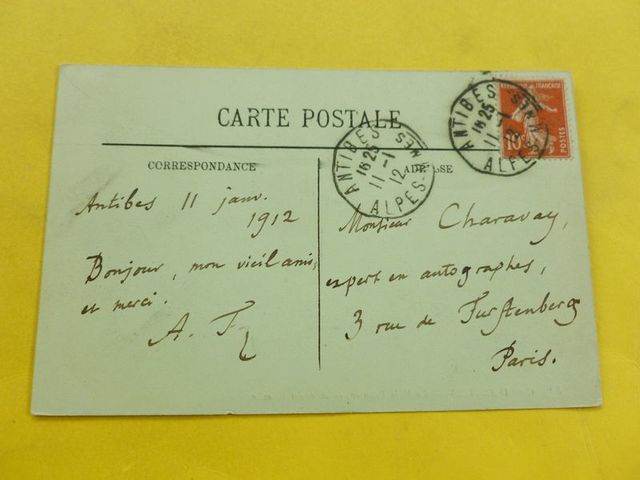 CARTE POSTALE
CORRESPONDANCE
Antibes 11 janv.
1912
Bonjour, mon vieil ami,
et merci.
A. T
ADRESSE
Monsieur Charavay,
expert en autographes,
3 rue de Furstenberg
Paris.
ANTIBES
16 25
11 -1
12
ALPES-MMES
ANTIBES
16 25
11 -1
12
ALPES-MMES
REPUBLIQUE FRANCAISE
10c
POSTES